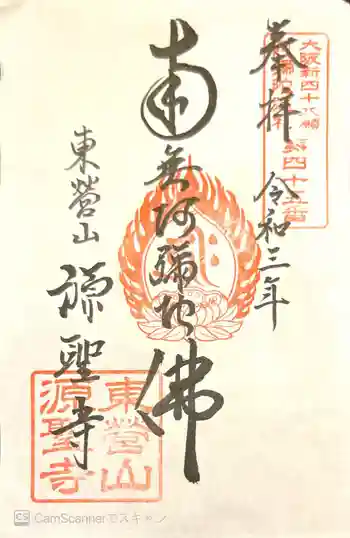 大阪新四十八願
第四十五番
奉拝
令和三年
南無阿弥陀佛
東營山
源聖寺
東營山
源聖寺
CS CamScannerでスキャン